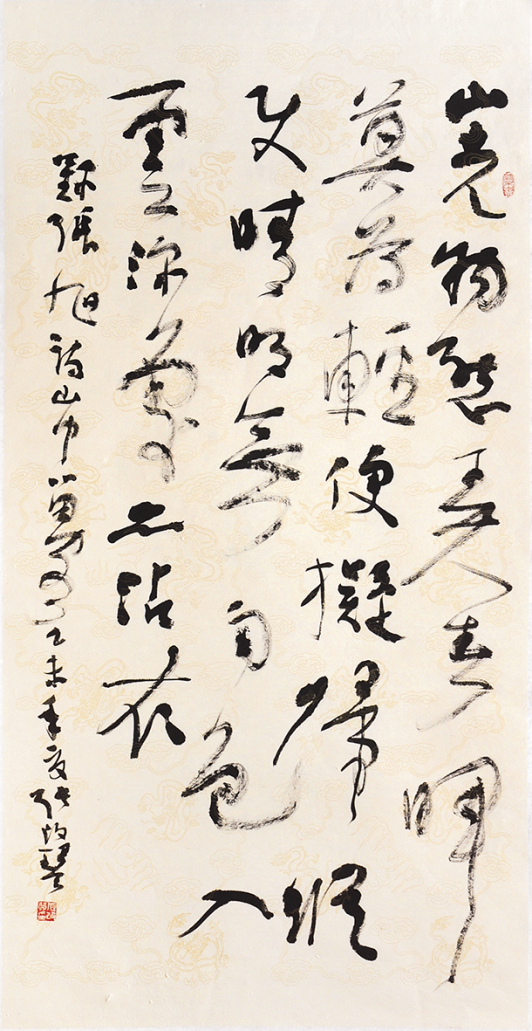 山光物態弄春暉
莫為輕便擬歸縱
使晴明無雨色入
雲深處亦沾衣
録張旭詩山中留客乙未年夏張